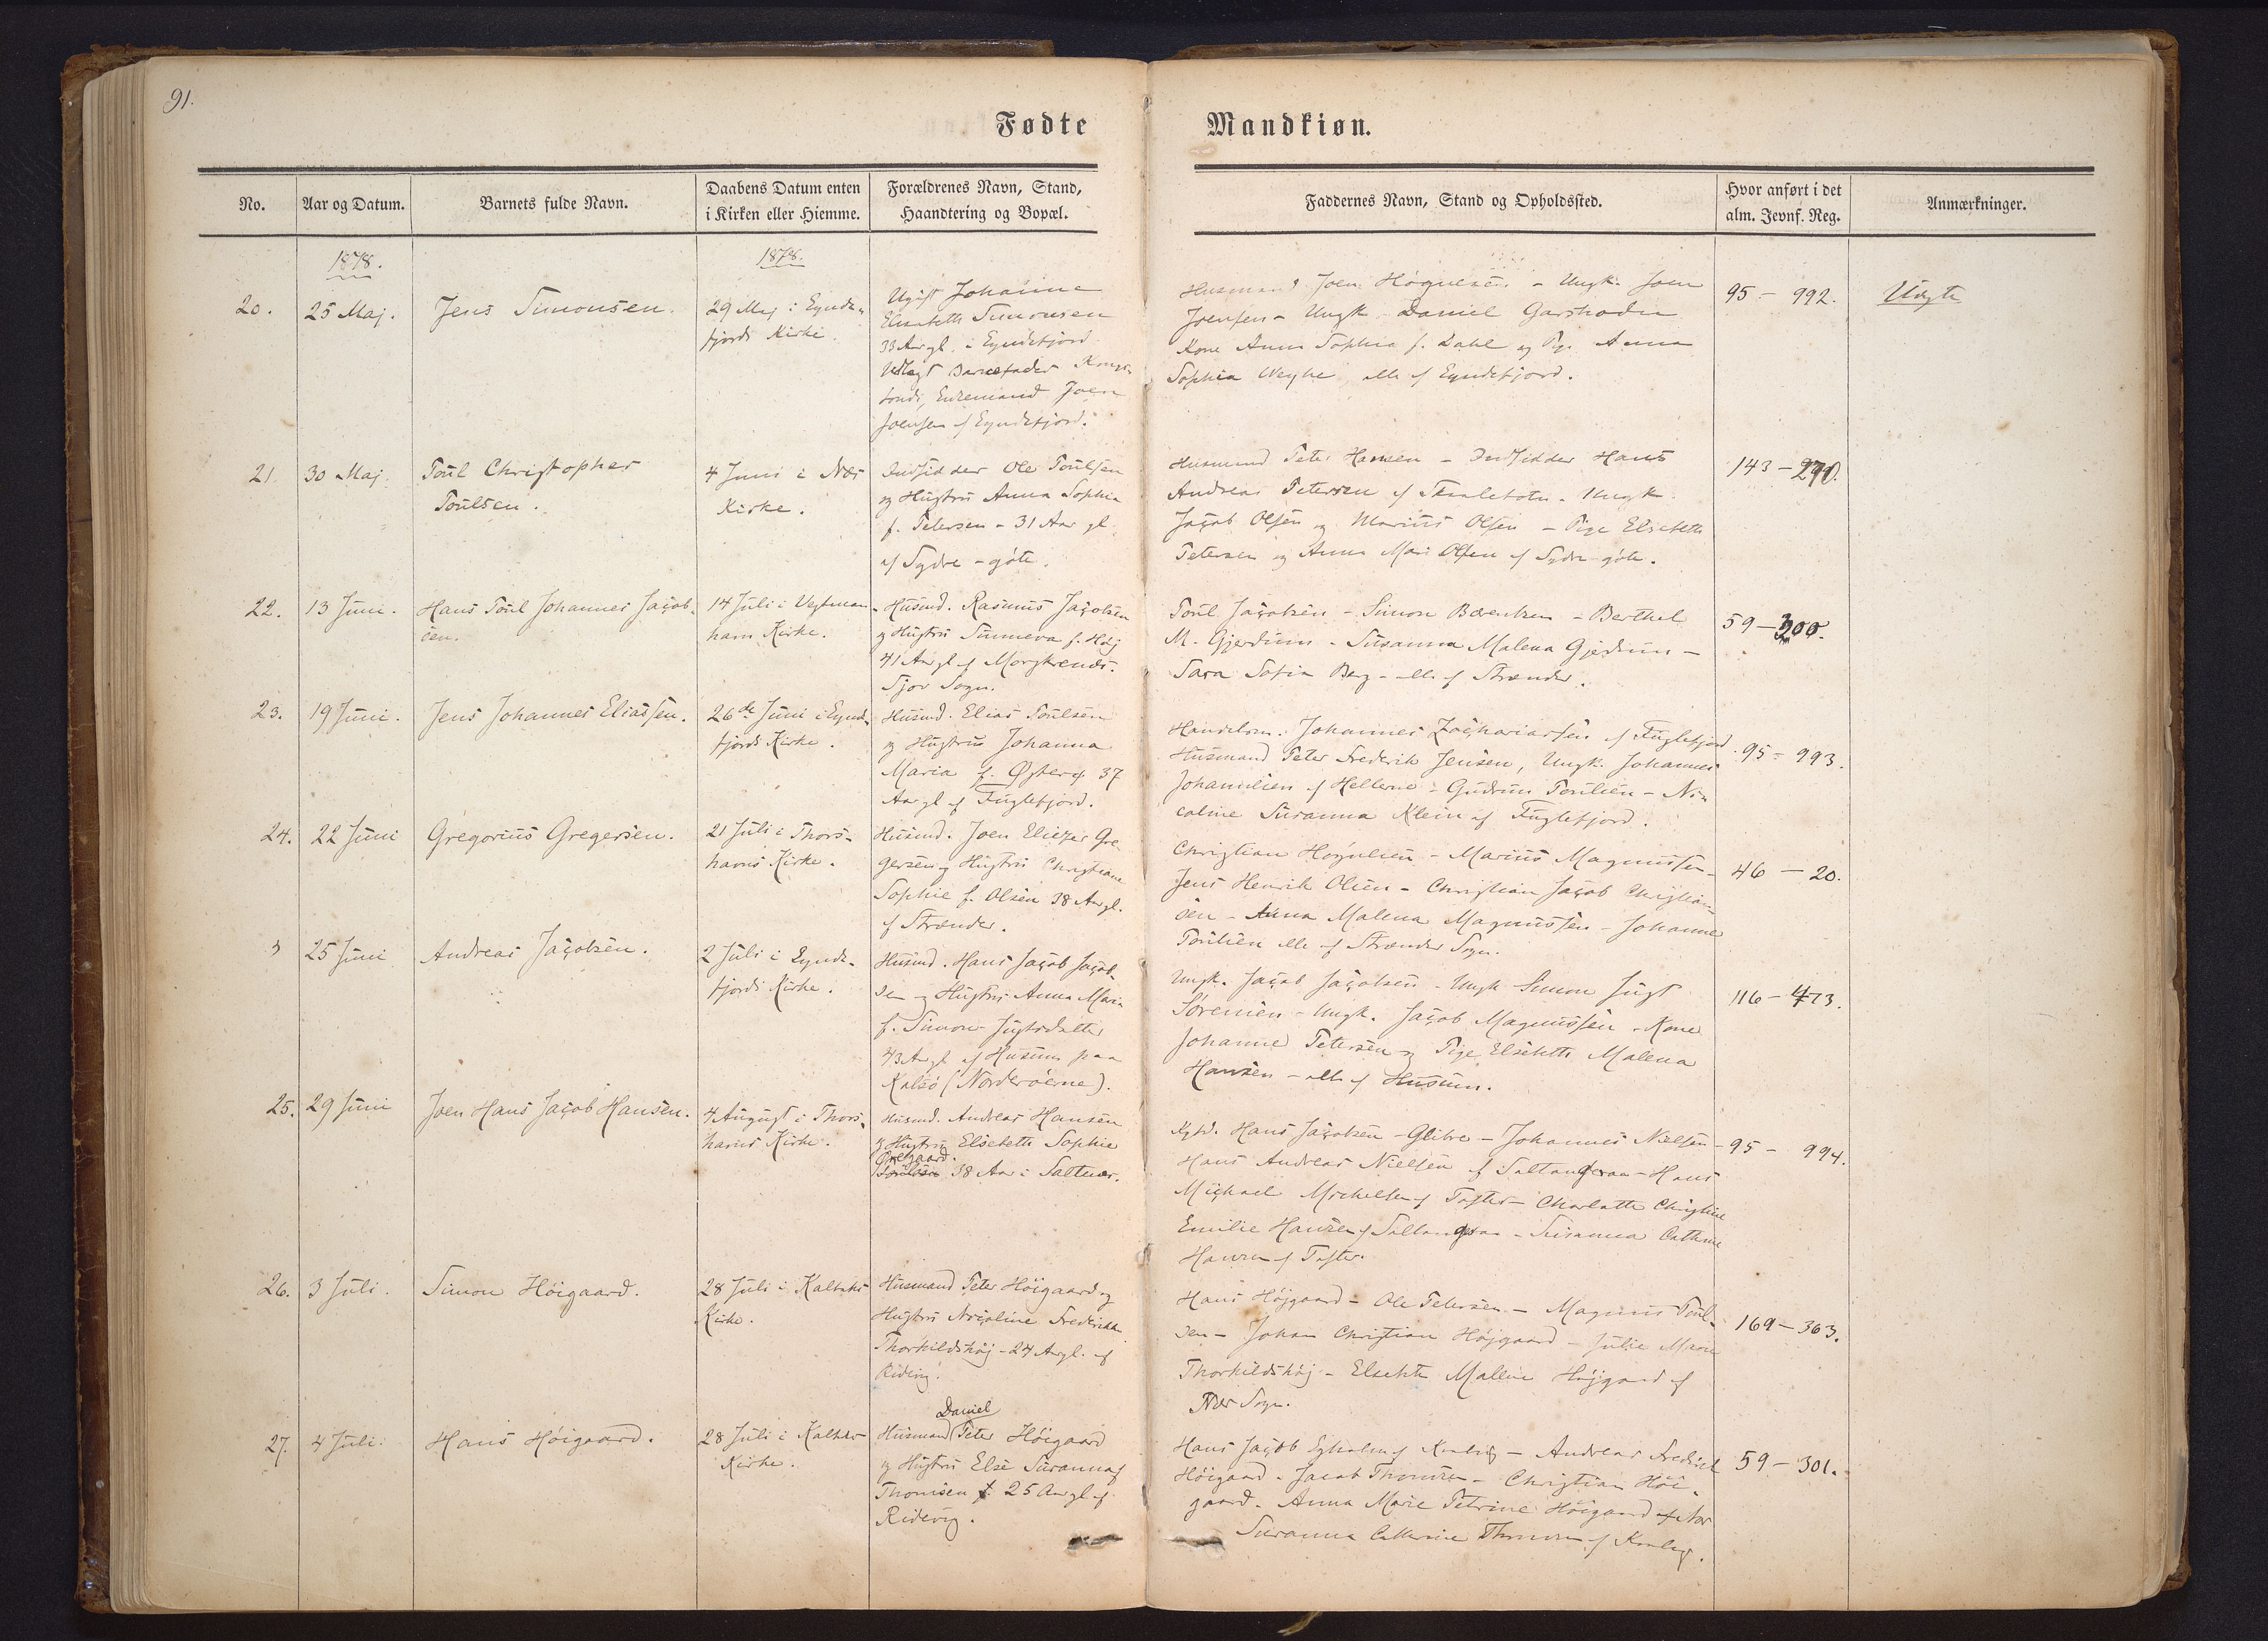 91.
Fødte Mandkiøn.
No.
Aar og Datum.
Barnets fulde Navn.
Daabens Datum enten
i Kirken eller Hiemme.
Forældrenes Navn, Stand,
Haandtering og Bopæl.
Faddernes Navn, Stand og Opholdssted.
Hvor anført i det
alm. Jevnf. Reg.
Anmærkninger.
1878.
1878.
20.
25 Maj.
Jens Simonsen.
29 Maj i Eynde-
fjords Kirke.
Ugift Johanne
Elsebeth Simonsen
33 Aar gl. i Eyndefjord
Udlagt Barnefader Kongs-
bonde, Enkemand Joen
Joensen af Eyndefjord.
Husmand Joen Høgnesen - Ungk. Joen
Joensen - Ungk. Daniel
Kone Anna Sophia f. Dahl og Pige Anna
Sophia Weyhe alle af Eyndefjord.
95 - 992.
Uægte
21.
30 Maj.
Poul Christopher
Poulsen.
4 Juni i Næs
Kirke.
Indsidder Ole Poulsen
og Hustru Anna Sophia
f. Petersen - 31 Aar gl.
af Sydre-gøte.
Husmand Peter Hansen - Indsidder Hans
Andreas Petersen af - Ungk.
Jacob Olsen og Marius Olsen - Pige Elsebeth
Petersen og Anna Mari Olsen af Sydre gøte.
143 - 270.
22.
13 Juni.
Hans Poul Johannes Jacob-
sen.
14 Juli i Vestman-
havn Kirke.
Husmd. Rasmus Jacobsen
og Hustru Sunneva f. Høj
41 Aar gl. af Morskranes.
Sjov Sogn.
Poul Jacobsen - Simon Bærentsen - Berthel
M. Gjerdum - Susanna Malena Gjerdum -
Sara Sofia Berg - alle af Strænder.
59 - 300.
23.
19 Juni.
Jens Johannes Eliassen.
26de Juni i Eynde-
fjords Kirke.
Husmd. Elias Poulsen
og Hustru Johanna
Maria f. Øster 37
Aar gl. af Fuglefjord.
Handelsm. Johannes Zachariassen af Fuglefjord
Husmand Peter Frederik Jensen, Ungk. Johannes
af Hellerne - Gudrun Poulsen - Ni-
coline Susanna Klein af Fuglefjord.
95 - 993.
24.
22 Juni
Gregorius Gregersen.
21 Juli i Thors-
havns Kirke.
Husmd. Joen Eliezer Gre
gersen og Hustru Christiane
Sophie f. Olsen 38 Aar gl.
af Strænder.
Christian Høgnesen - Marius Magnussen -
Jens Henrik Olsen - Christian Jacob Christian-
sen - Anna Malena Magnussen - Johanne
Poulsen alle af Strænder Sogn.
46 - 20.
25 Juni
Andreas Jacobsen.
2 Juli i Eynde-
fjords Kirke.
Husmd. Hans Jacob Jacob-
sen og Hustru Anna Maria
f. Simon-Justsdatter
43 Aar gl. af Husum paa
Kalsø (Norderøerne).
Ungk. Jacob Jacobsen - Ungk. Simon Just
Sørensen - Ungk. Jacob Magnussen - Kone
Johanne Petersen og Pige Elsebeth Malena
Hansen - alle af Husum.
116 - 473.
25.
29 Juni
Joen Hans Jacob Hansen.
4 August i Thors-
havns Kirke.
Husmd. Andreas Hansen
og Hustru Elsebeth Sophie
Øregaard.
Poulsen 38 Aar i Saltnæs.
Kgbd. Hans Jacobsen - Glibre - Johannes Nielsen -
Hans Andreas Nielsen af Saltangeraa - Hans
Michael Michelsen af Tofter - Charlotte Christine
Emilie Hansen af Saltangeraa - Susanna Cathrine
Hansen af Tofter.
95 - 994.
26.
3 Juli.
Simon Höigaard.
28 Juli i Kalbaks
Kirke.
Husmand Peter Höigaard og
Hustru Nicoline Frederikke
Thorkildshøj - 24 Aar gl. af
Ridevig.
Hans Højgaard - Ole Petersen - Magnus Poul-
sen - Johan Christian Højgaard - Julie Marie
Thorkildshøj - Elsebeth Maline Højgaard af
Næs Sogn.
169 - 363.
27.
4 Juli.
Hans Höigaard.
28 Juli i Kalbaks
Kirke.
Daniel
Husmand Peter Höigaard
og Hustru Else Susanna f.
Thomsen 25 Aar gl. af
Ridevig.
Hans Jacob - Andreas Frederik
Höigaard - Jacob Thomsen - Christian Höi-
gaard - Anna Marie Petrine Höigaard af Næs
Susanna Cathrine Thomsen af
59 - 301.